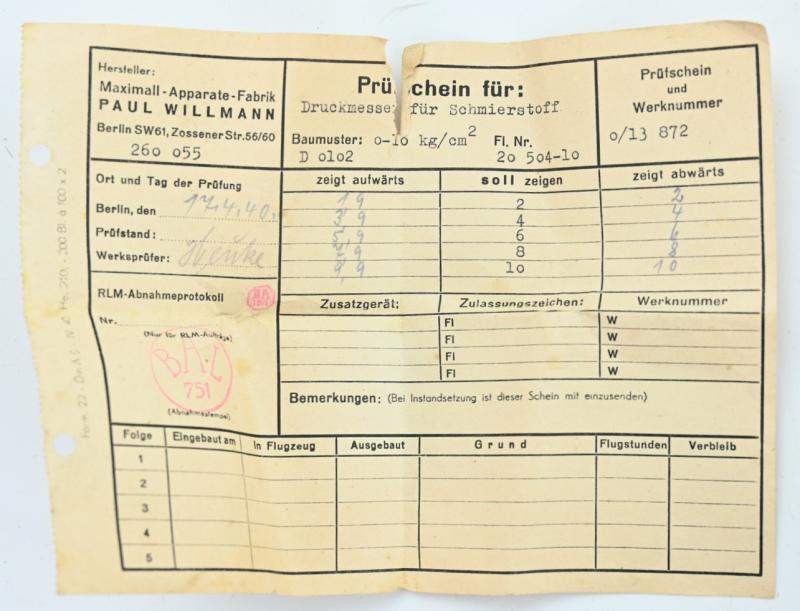 Hersteller:
Maximall-Apparate-Fabrik
PAUL WILLMANN
Berlin SW61, Zossener Str. 56/60
260 055
Prüfschein für:
Druckmesser für Schmierstoff
Baumuster: 0-10 kg/cm² Fl. Nr.
D 0102 20 504-10
Prüfschein
und
Werknummer
0/13 872
Ort und Tag der Prüfung
Berlin, den 17.4.40.
Prüfstand:
Werksprüfer:
zeigt aufwärts soll zeigen zeigt abwärts
1,9 2 2
3,9 4 4
5,9 6 6
8 8
9,9 10 10
RLM-Abnahmeprotokoll
Nr.
(Nur für RLM-Aufträge)
BAL
751
(Abnahmestempel)
Zusatzgerät: Zulassungszeichen: Werknummer
Fl W
Fl W
Fl W
Fl W
Bemerkungen: (Bei Instandsetzung ist dieser Schein mit einzusenden)
Folge Eingebaut am In Flugzeug Ausgebaut Grund Flugstunden Verbleib
1
2
3
4
5